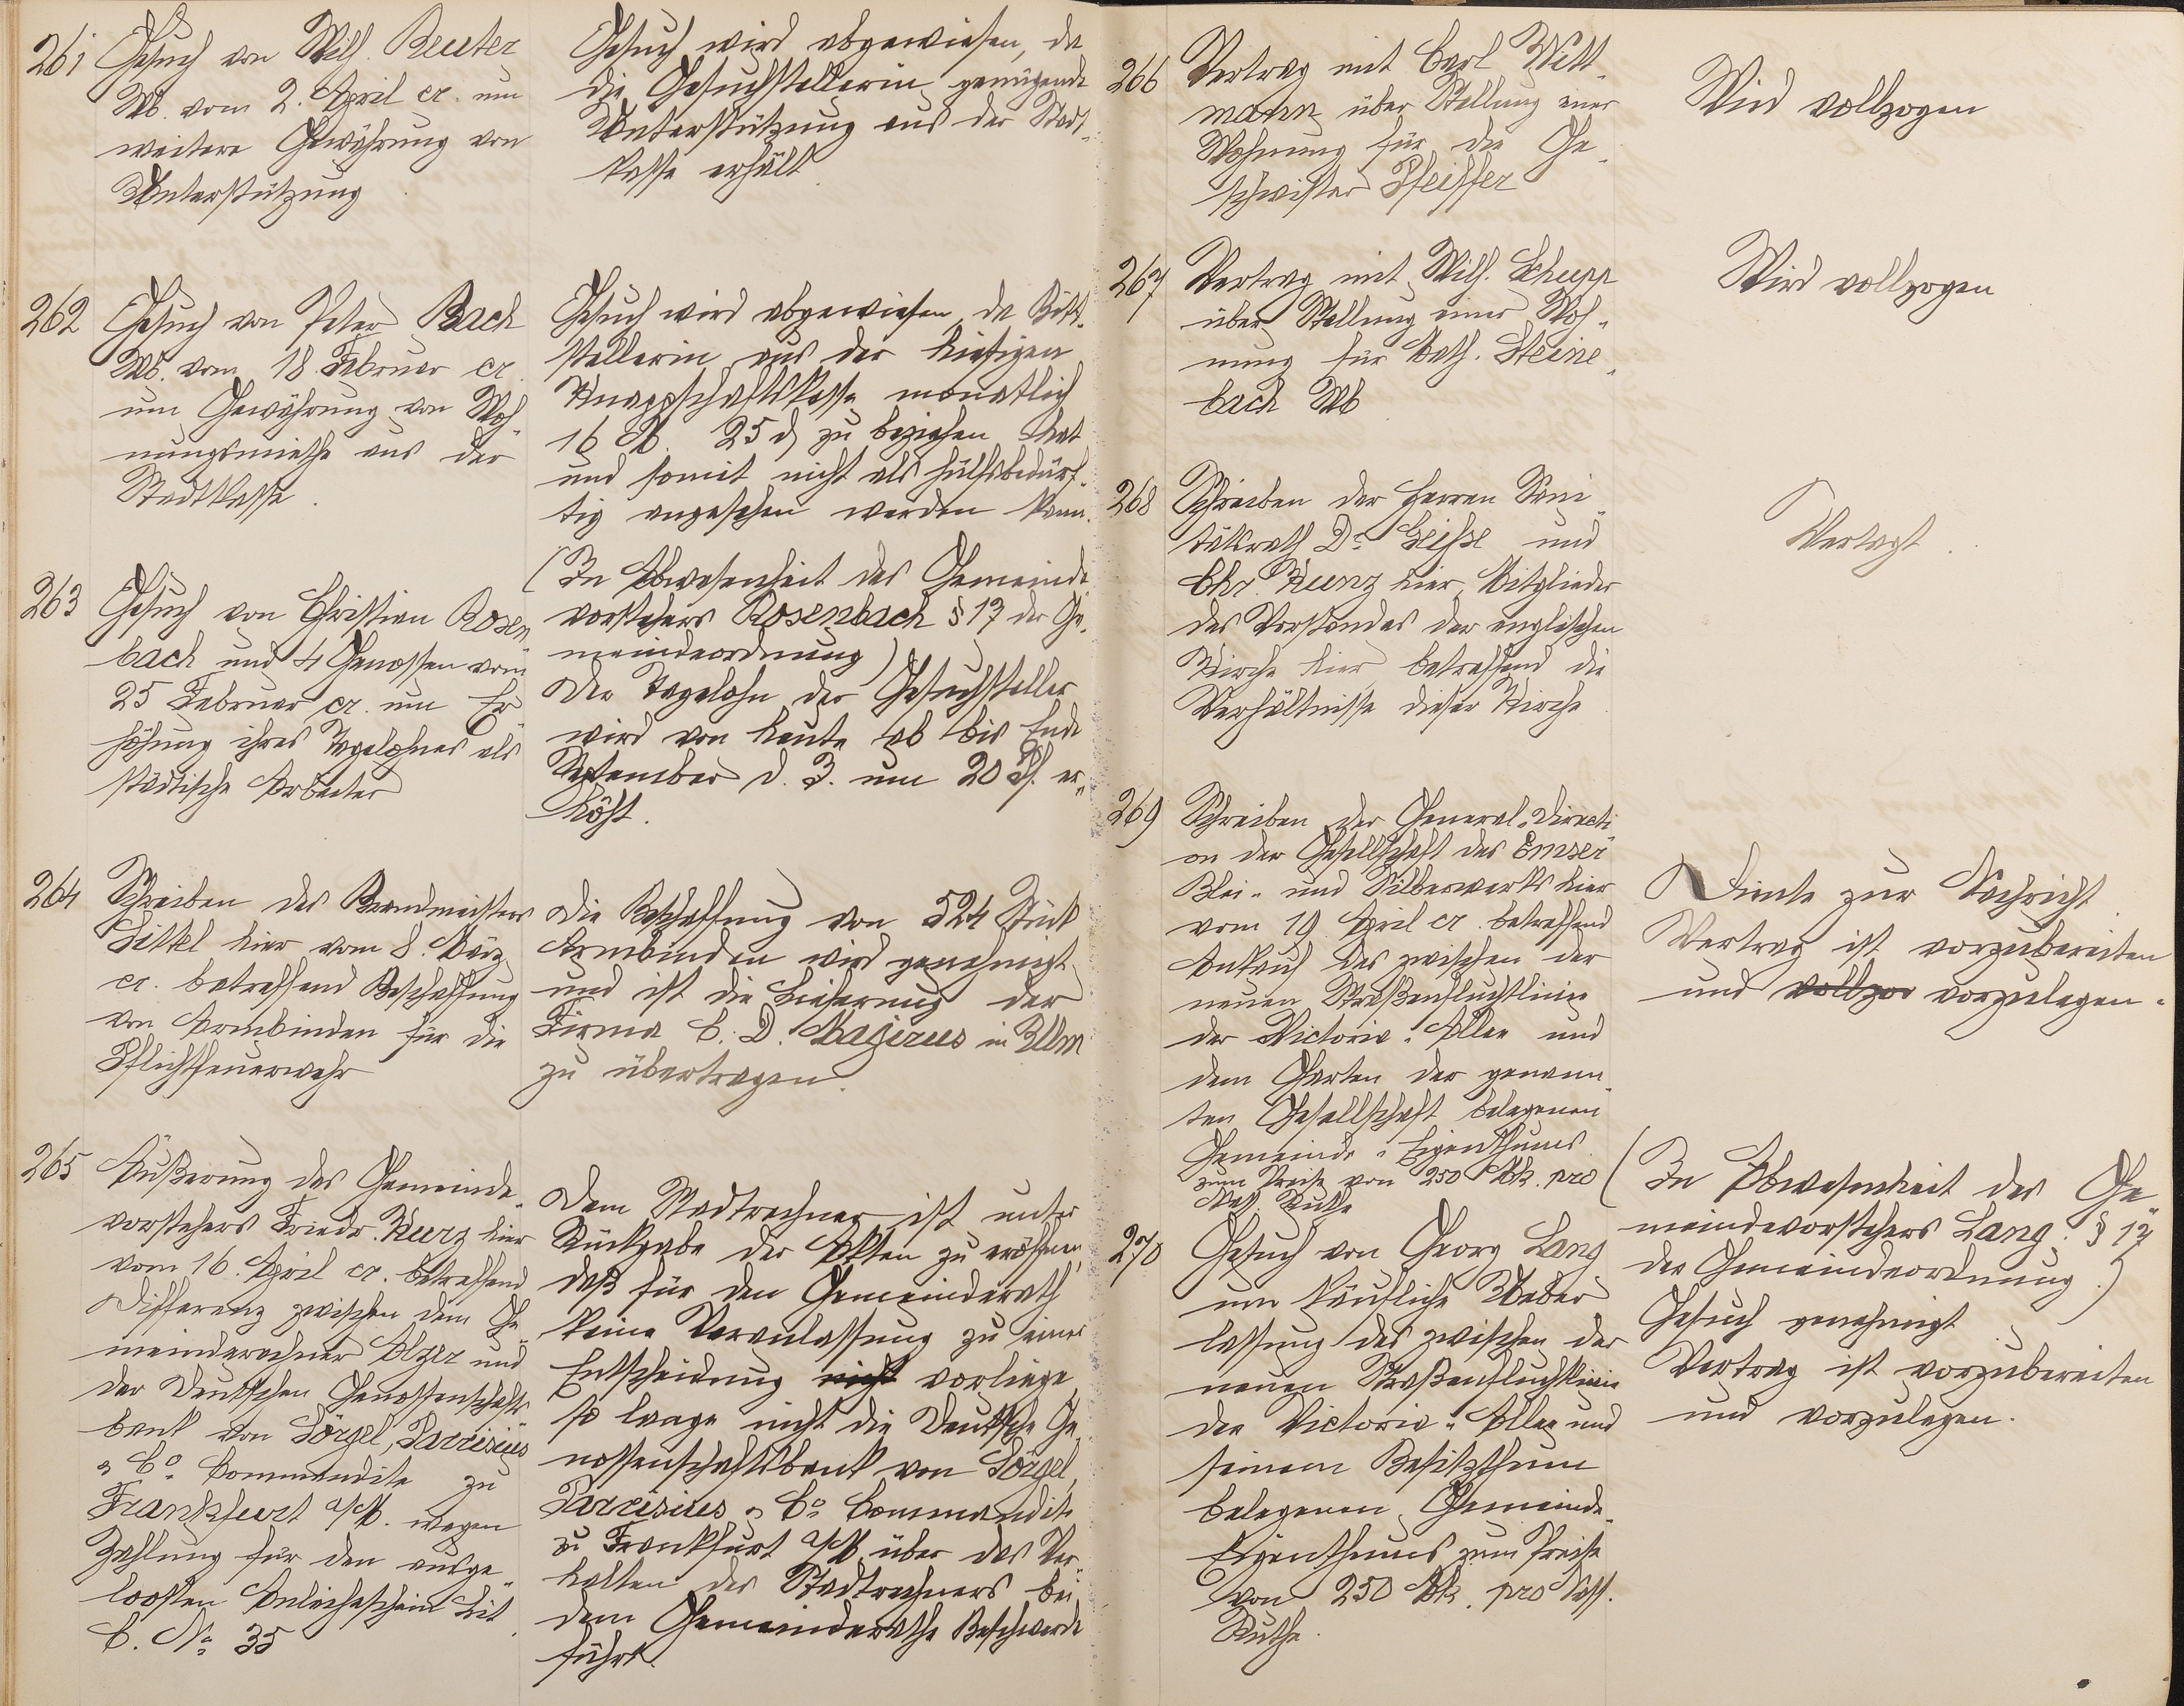 261 Gesuch von Wilh. Reuter
Wb. vom 2. April cr. um
weitere Gewährung von
Unterstützung
Gesuch wird abgewiesen, da
die Gesuchstellerin genügende
Unterstützung aus der Stadt-
kasse erhält
262 Gesuch von Peter Bach
Wb. vom 18 Februar cr.
um Gewährung von Woh-
nungsmiethe aus der
Stadtkasse.
Gesuch wird abgewiesen, da Bitt-
stellerin aus der hiesigen
Knappschaftskasse monatlich
16 M. 25 d zu beziehen hat
und somit nicht als hülfsbedürf-
tig angesehen werden kann.
263 Gesuch von Christian Rosen
bach und 4 Genossen vom
25 Februar cr. um Er-
höhung ihres Tagelohnes als
städtische Arbeiter
(In Abwesenheit des Gemeinde-
vorstehers Rosenbach § 17 der Ge-
meindeordnung)
Der Tagelohn der Gesuchsteller
wird von heute ab bis Ende
September d. J. um 20 Pf. er-
höht.
264 Schreiben des Brandmeisters
Sittel hier vom 8. März
cr. betreffend Beschaffung
von Armbinden für die
Pflichtfeuerwehr
Die Beschaffung von 524 Stück
Armbinden wird genehmigt
und ist die Lieferung der
Firma C. D. Magirus in Ulm
zu übertragen.
265 Äußerung des Gemeinde-
vorstehers Friedr. Kurz hier
vom 16. April cr. betreffend
Differenz zwischen dem Ge-
meinderechner Alzer und
der Deutschen Genossenschafts-
bank von Sörgel, Parrisius
& Co. Commandite zu
Frankfurt a/M. wegen
Zahlung für den ausge-
loosten Anleiheschein Lit.
C. No. 35
Dem Stadtrechner ist unter
Rückgabe der Akten zu eröffnen,
daß für den Gemeinderath
keine Veranlassung zu einer
Entscheidung nicht vorliege,
so lange nicht die Deutsche Ge-
nossenschaftsbank von Sörgel,
Parrisius & Co. Commandite
zu Frankfurt a/M. über das Ver-
halten des Stadtrechners bei
dem Gemeinderathe Beschwerde
führt.
266 Vertrag mit Carl Witt-
mann über Stellung einer
Wohnung für die Ge-
schwister Pfeiffer
Wird vollzogen
267 Vertrag mit Wilh. Schupp
über Stellung einer Woh-
nung für Cath. Steine-
bach Wb
Wird vollzogen
268 Schreiben der Herren Sani-
tätsrath Dr. Geisse und
Chr. Kunz hier, Mitglieder
des Vorstandes der englischen
Kirche hier betreffend die
Verhältnisse dieser Kirche
Vertagt.
269 Schreiben der General-Directi-
on der Gesellschaft des Emser
Blei- und Silberwerks hier
vom 19 April cr. betreffend
Ankauf des zwischen der
neuen Straßenfluchtlinie
der Victoria-Allee und
dem Garten der genann-
ten Gesellschaft belegenen
Gemeinde-Eigenthums
zum Preise von 250 Mk. pro
Nass. Ruthe
Diente zur Nachricht.
Vertrag ist vorzubereiten
und vollzo vorzulegen.
270 Gesuch von Georg Lang
um käufliche Ueber-
lassung des zwischen der
neuen Straßenfluchtlinie
der Victoria-Allee und
seinem Besitzthum
belegenen Gemeinde-
Eigenthums zum Preise
von 250 Mk. pro Nass.
Ruthe.
(In Abwesenheit des Ge-
meindevorstehers Lang. § 17
der Gemeindeordnung.)
Gesuch genehmigt.
Vertrag ist vorzubereiten
und vorzulegen.